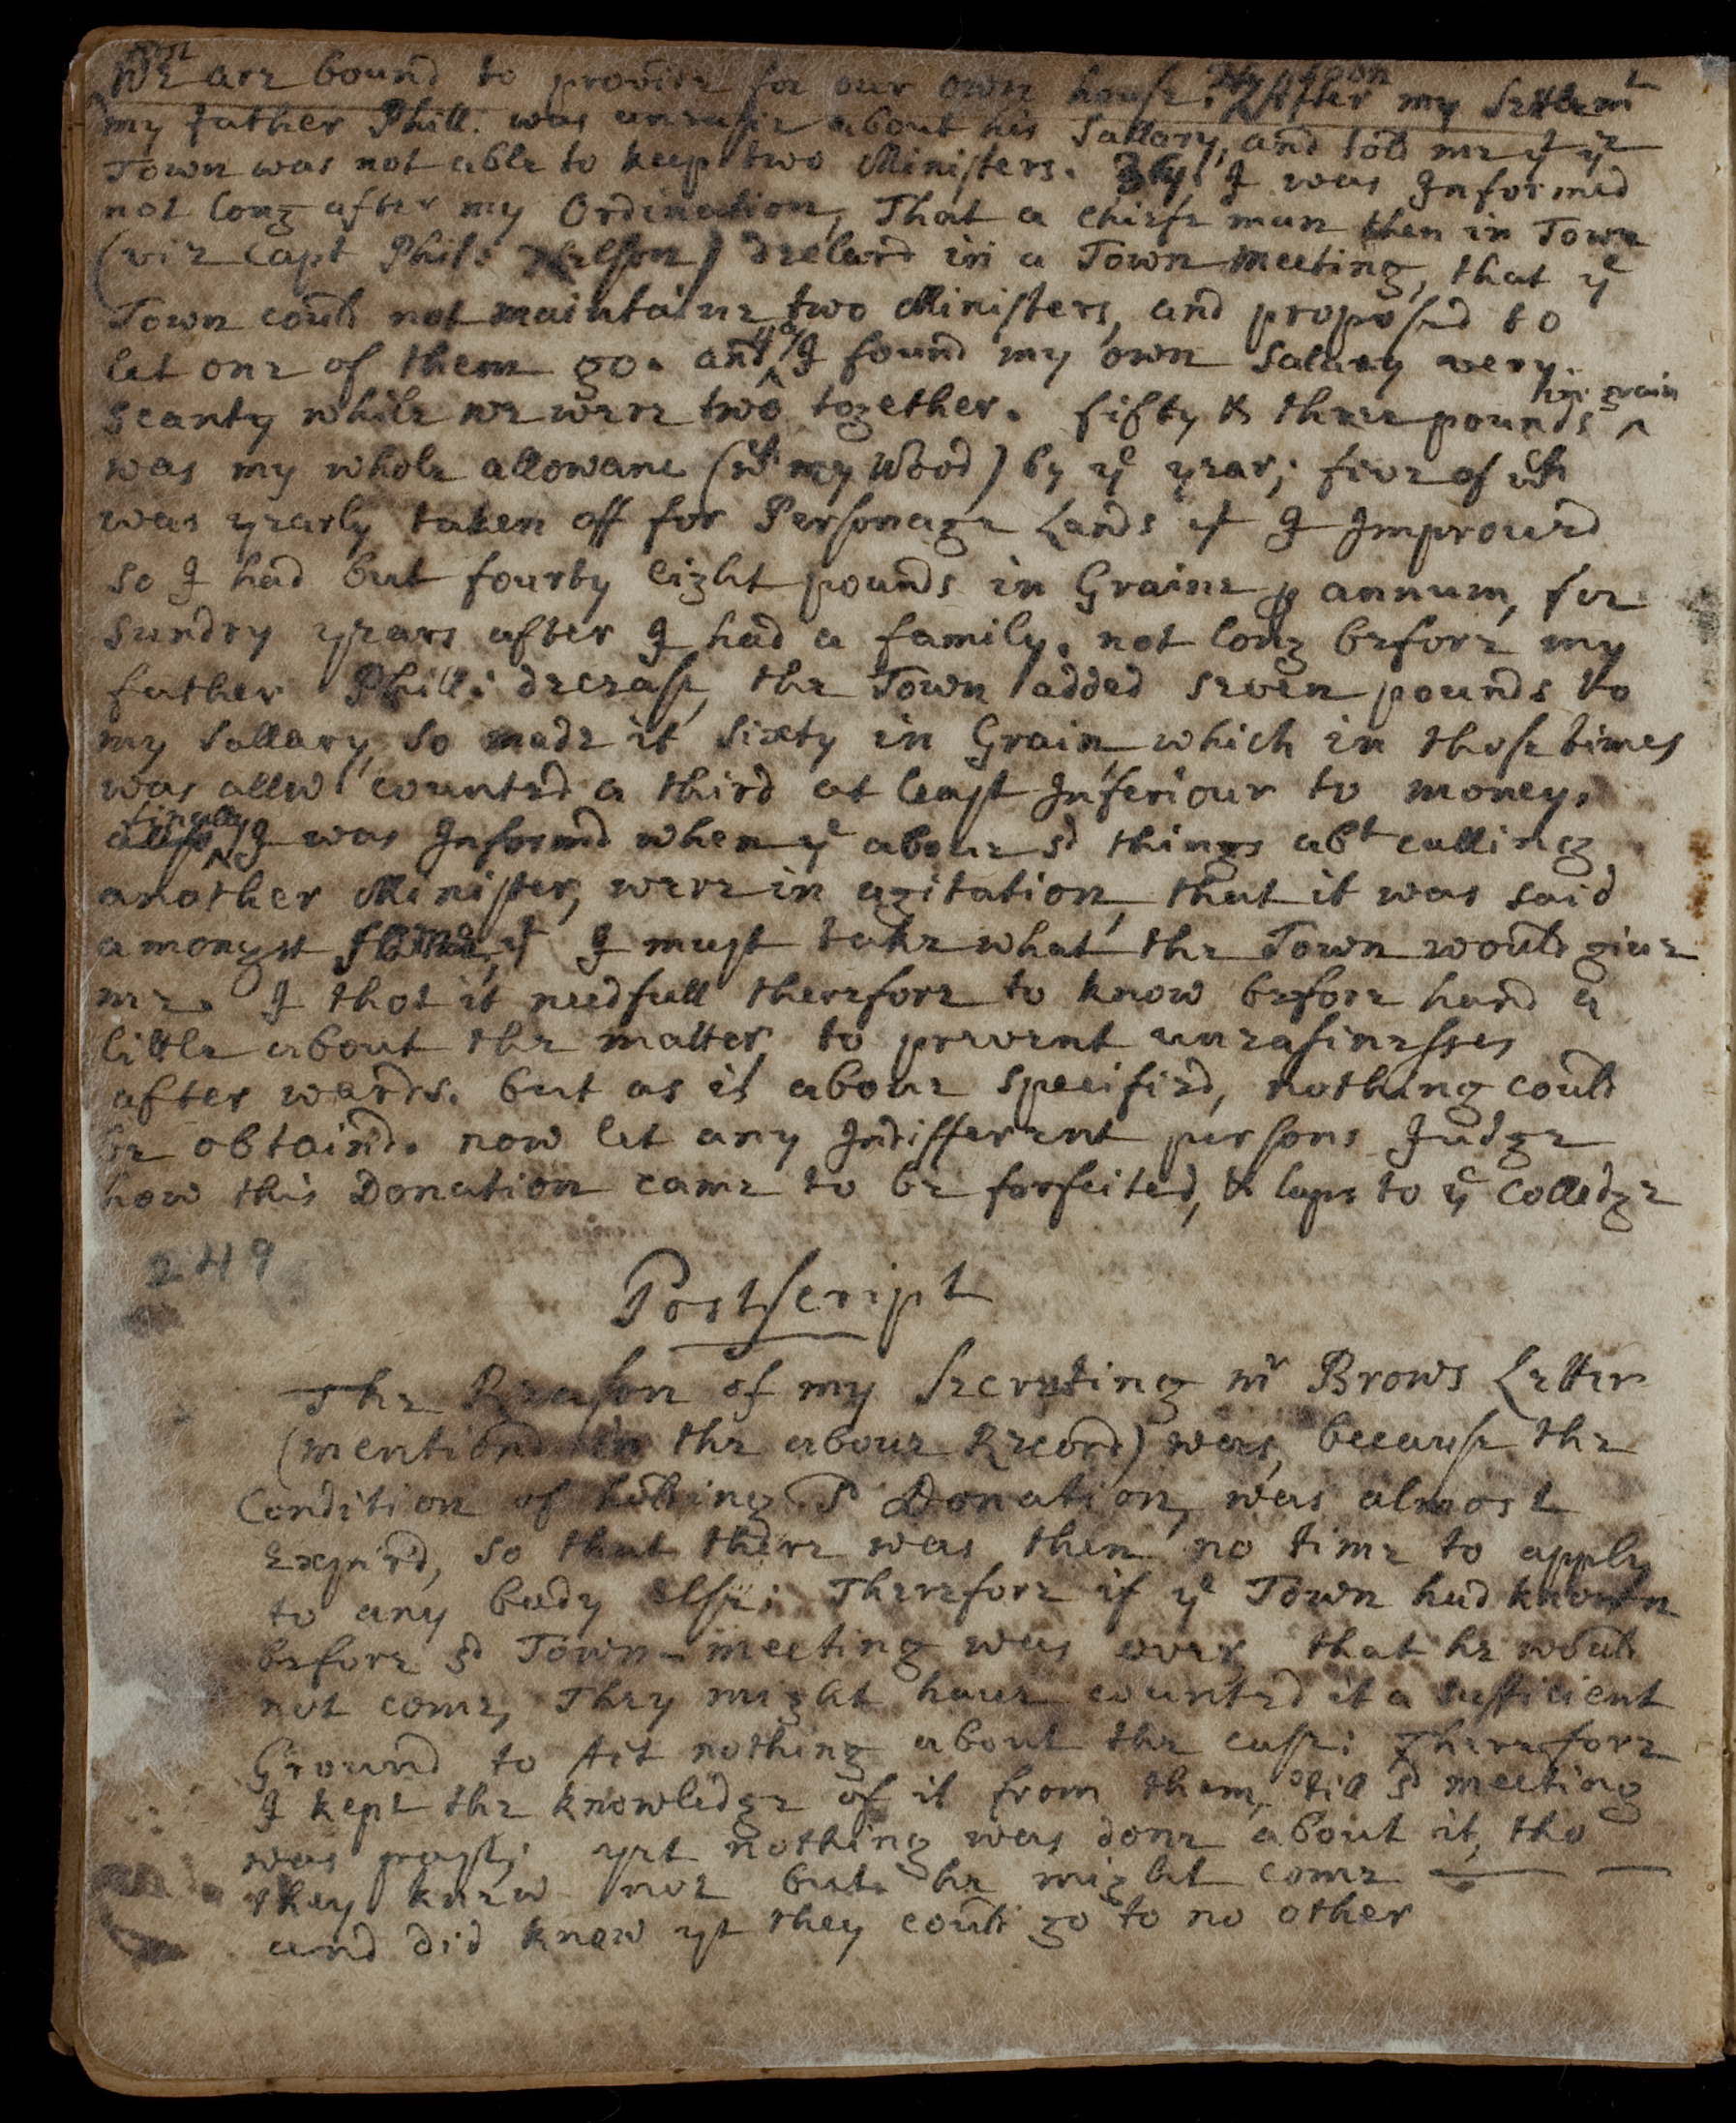 We are bound to provide for our own house. After my Settlemt
my father Phill. was uneasie about his Sallary, and told me yt ye
Town was not able to keep two Ministers. 3ly. I was Informed
not long after my Ordination, That a chiefe man then in Town
(viz Capt Phil: Nelson) declard in a Town meeting, that ye
Town could not maintaine two Ministers, and proposed to
let one of them go. and I found my own Salary very
scanty while we were two together. fifty & three pounds
in grain
was my whole allowanc (wth my Wood) by ye year; five of wch
was yearly taken off for Personage Lands yt I Improved
so I had but fourty eight pounds in Graine p annum, for
sundry years after I had a family. not long before my
father Phill: decease, the Town added seven pounds to
my Sallary, so made it sixty in Grain, which in those times
was allw. counted a third at least Inferiour to money.
finally
I was Informd when ye above sd things abt calling
another Minister, were in agitation, that it was said
amongst some, yt I must take what the Town would give
me. I thot it needfull therefore to know before hand a
little about the matter, to prevent uneasinesses
after wards. but as is above specified, nothing could
be obtaind. now let any Indifferent persons Judge
how this Donation came to be forfeited, & laps to ye Colledge
249
Postscript
The Reason of my Secreting mr Brows Letter
(mentiond in the above Record) was, because the
Condition of holding sd Donation, was almost
Expir'd, so that there was then no time to apply
to any body else: Therefore if ye Town had known
before sd Town-meeting was over that he would
not come, They might have counted it a sufficient
Ground to Act nothing about the case: Therefore
I kept the knowledge of it from them, till sd meeting
was past; yet nothing was done about it, tho
they knew not but he might come
and did know yt they could go to no other